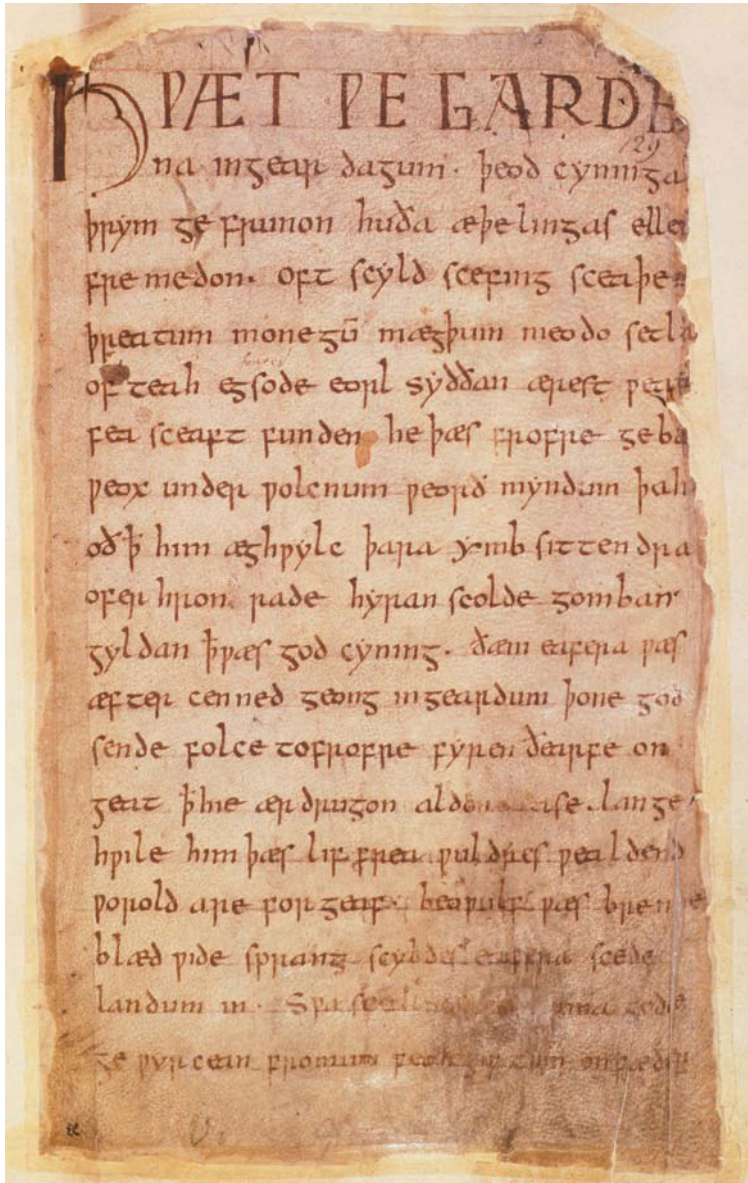 HǷÆT ǷE GARDE
129
na ingear dagum· þeod cyninga
þrym ge frunon huða æþelingas ellen
fre medon· oft scyld scefing sceaþen
þreatum monegū mægþum meodo setla
of teah egsode eorl syððan ærest ƿearð
fea sceaft funden he þæs frofre geba
ƿeox under ƿolcnum ƿeorð myndum þah
oð ꝥ him æghƿylc þara ymb sittendra
ofer hron rade hyran scolde gomban
gyldan ꝥ ƿæs god cyning· ðæm eafera ƿæs
æfter cenned geong ingeardum þone god
sende folce tofrofre fyren ðearfe on
geat ꝥ hie ær drugon aldor ase· lange
hƿile him þæs lif frea ƿuldres ƿealdend
ƿorold are for geaf· beoƿulf ƿæs breme
blæd ƿide sprang scyldes eafera scede
landum in· Sƿa sceal guma gode
ge ƿyrcean fromum feoh giftum on fæder